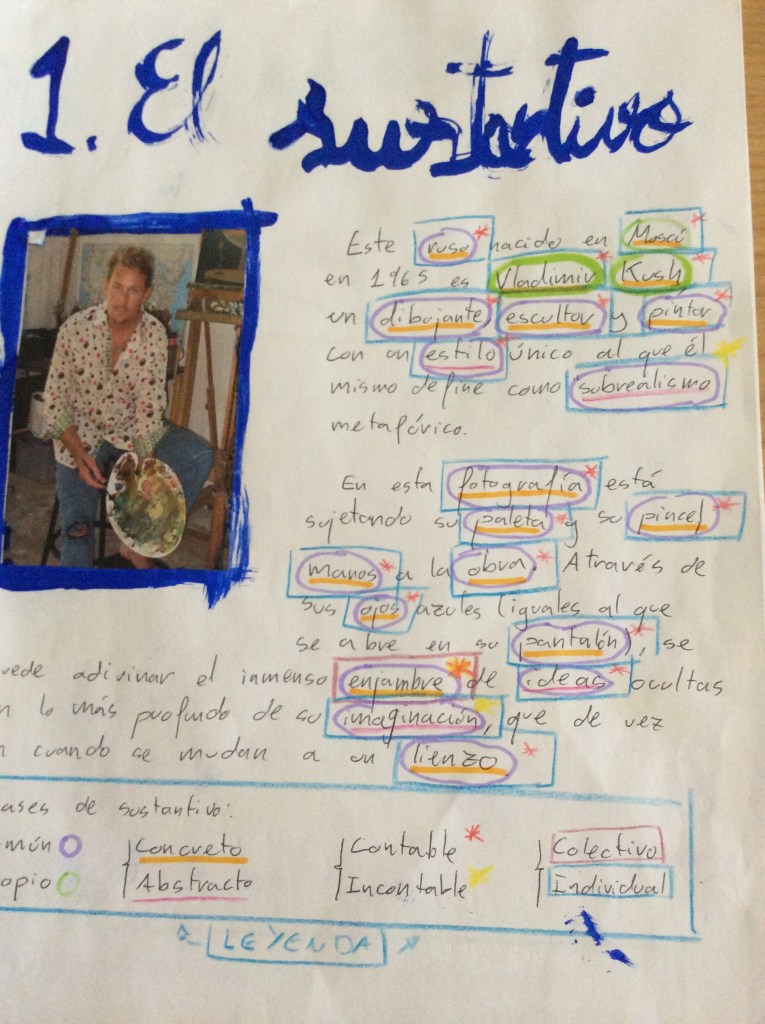 1. El sustantivo
Este ruso nacido en Moscú
en 1965 es Vladimir Kush,
un dibujante escultor y pintor
con un estilo único al que él
mismo define como subrealismo
metafórico.
En esta fotografía está
sujetando su paleta y su pincel
manos a la obra. Através de
sus ojos azules (iguales al que
se abre en su pantalón), se
uede adivinar el inmenso enjambre de ideas ocultas
n lo más profundo de su imaginación, que de vez
n cuando se mudan a un lienzo
ases de sustantivo:
mún Concreto Contable Colectivo
opio Abstracto Incontable Individual
LEYENDA